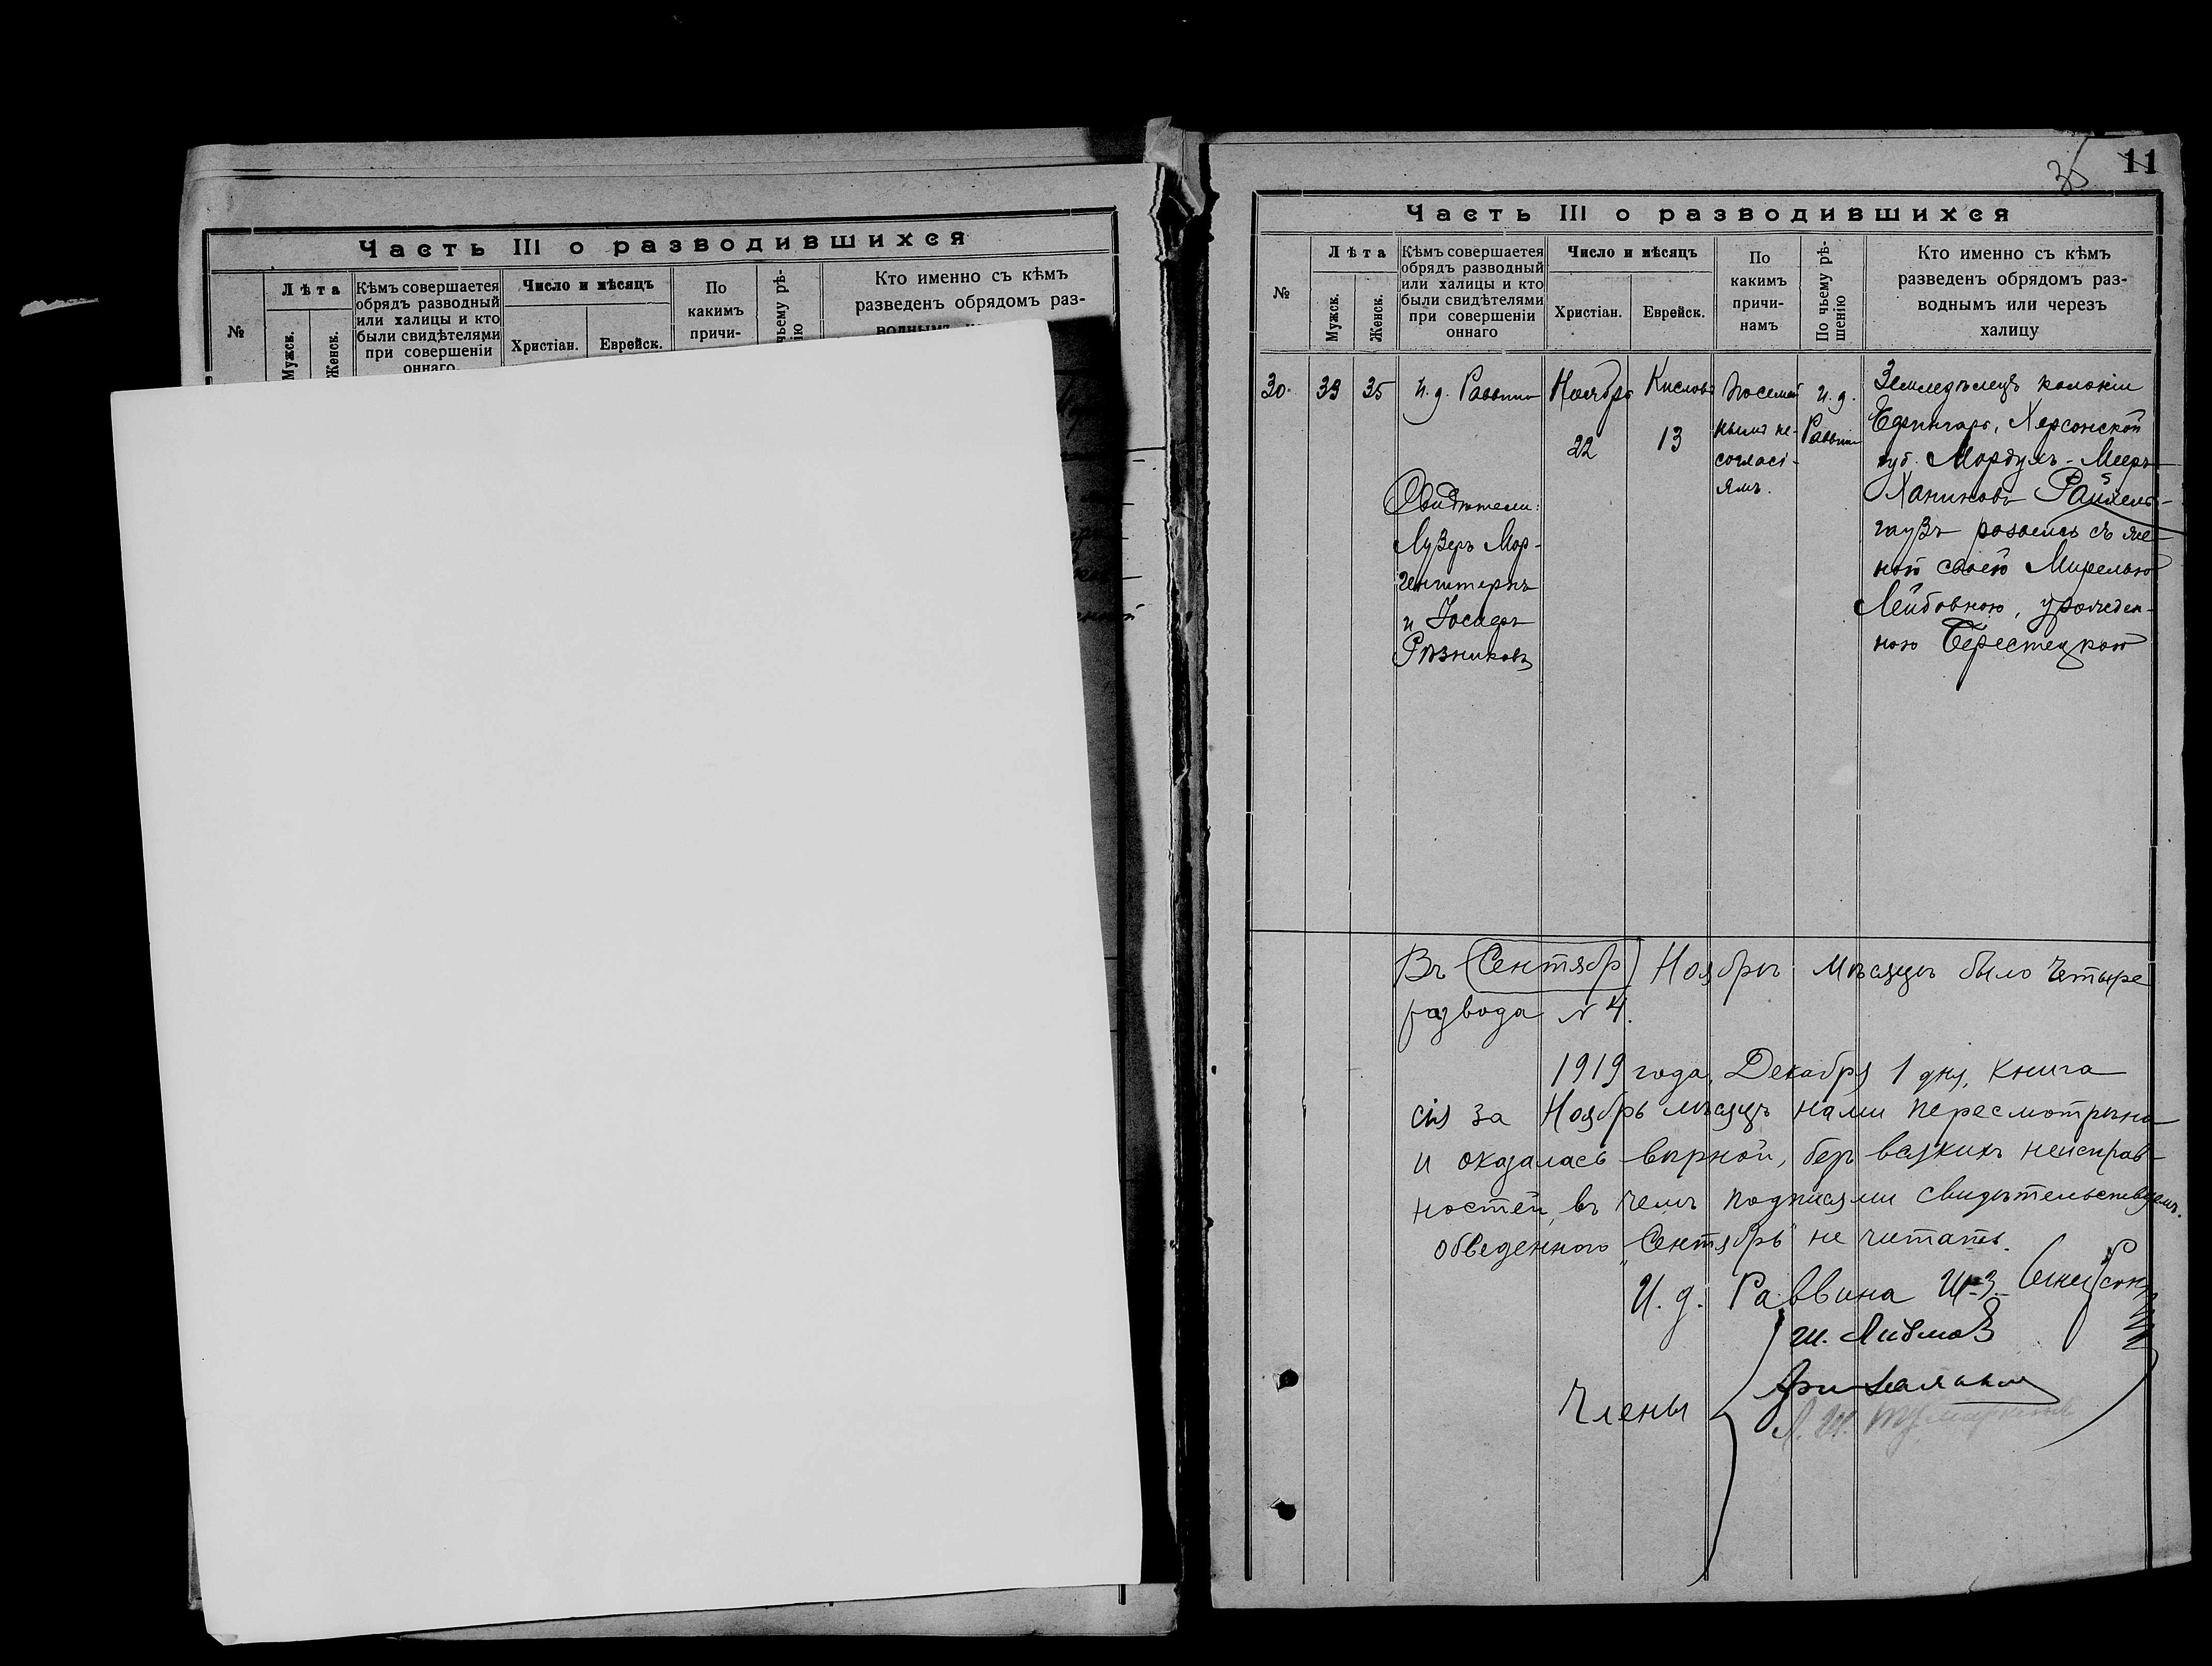 Часть III о разводившихся
№
Лѣта
Мужск.
Женск.
Кѣмъ совершается
обрядъ разводный
или халицы и кто
были свидѣтелями
при совершеніи
оннаго.
Число и мѣсяцъ
Христіан.
Еврейск.
По
какимъ
причи-
чьему рѣ-
Кто именно съ кѣмъ
разведенъ обрядомъ раз-
35
11
Часть III о разводившихся
№
Лѣта
Мужск.
Женск.
Кѣмъ совершается
обрядъ разводный
или халицы и кто
были свидѣтелями
при совершеніи
оннаго
Число и мѣсяцъ
Христіан.
Еврейск.
По
какимъ
причи-
намъ
По чьему рѣ-
шенію
Кто именно съ кѣмъ
разведенъ обрядомъ раз-
воднымъ или черезъ
халицу
30.
39
35
И. д. Раввина
Свидѣтели:
Лузеръ Мор-
генштернъ
и Іосифъ
Рѣзниковъ
Ноября
22
Кислова
13
По семей
нымъ не-
согласі-
ямъ.
И. д.
Раввина
Земледѣлецъ колоніи
Ефингаръ, Херсонской
губ. Мордухъ-Мееръ
Хаимовъ
гаузъ развелся съ же-
ной своею Мирелью
Лейбовною, урожден-
ною Берестецкою
Въ (Сентябр) Ноябрѣ Мѣсяцѣ было Четыре
развода № 4.
1919 года, Декабря 1 дня, Книга
сія за Ноябрь мѣсяцъ нами пересмотрѣна
и оказалась вѣрной, безъ всякихъ неисправ-
ностей, въ чемъ подписями свидѣтельствуемъ.
Обведенного „Сентябрь" не читать.
И. д. Раввина
Члены